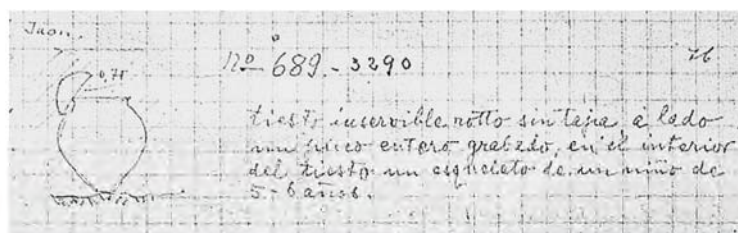 Juan.
Nº 689. - 3290
76
0,75
tiesto inservible rotto sin tapa a lado
un puco entero grabado, en el interior
del tiesto un esqueleto de un niño de
5-6 años.